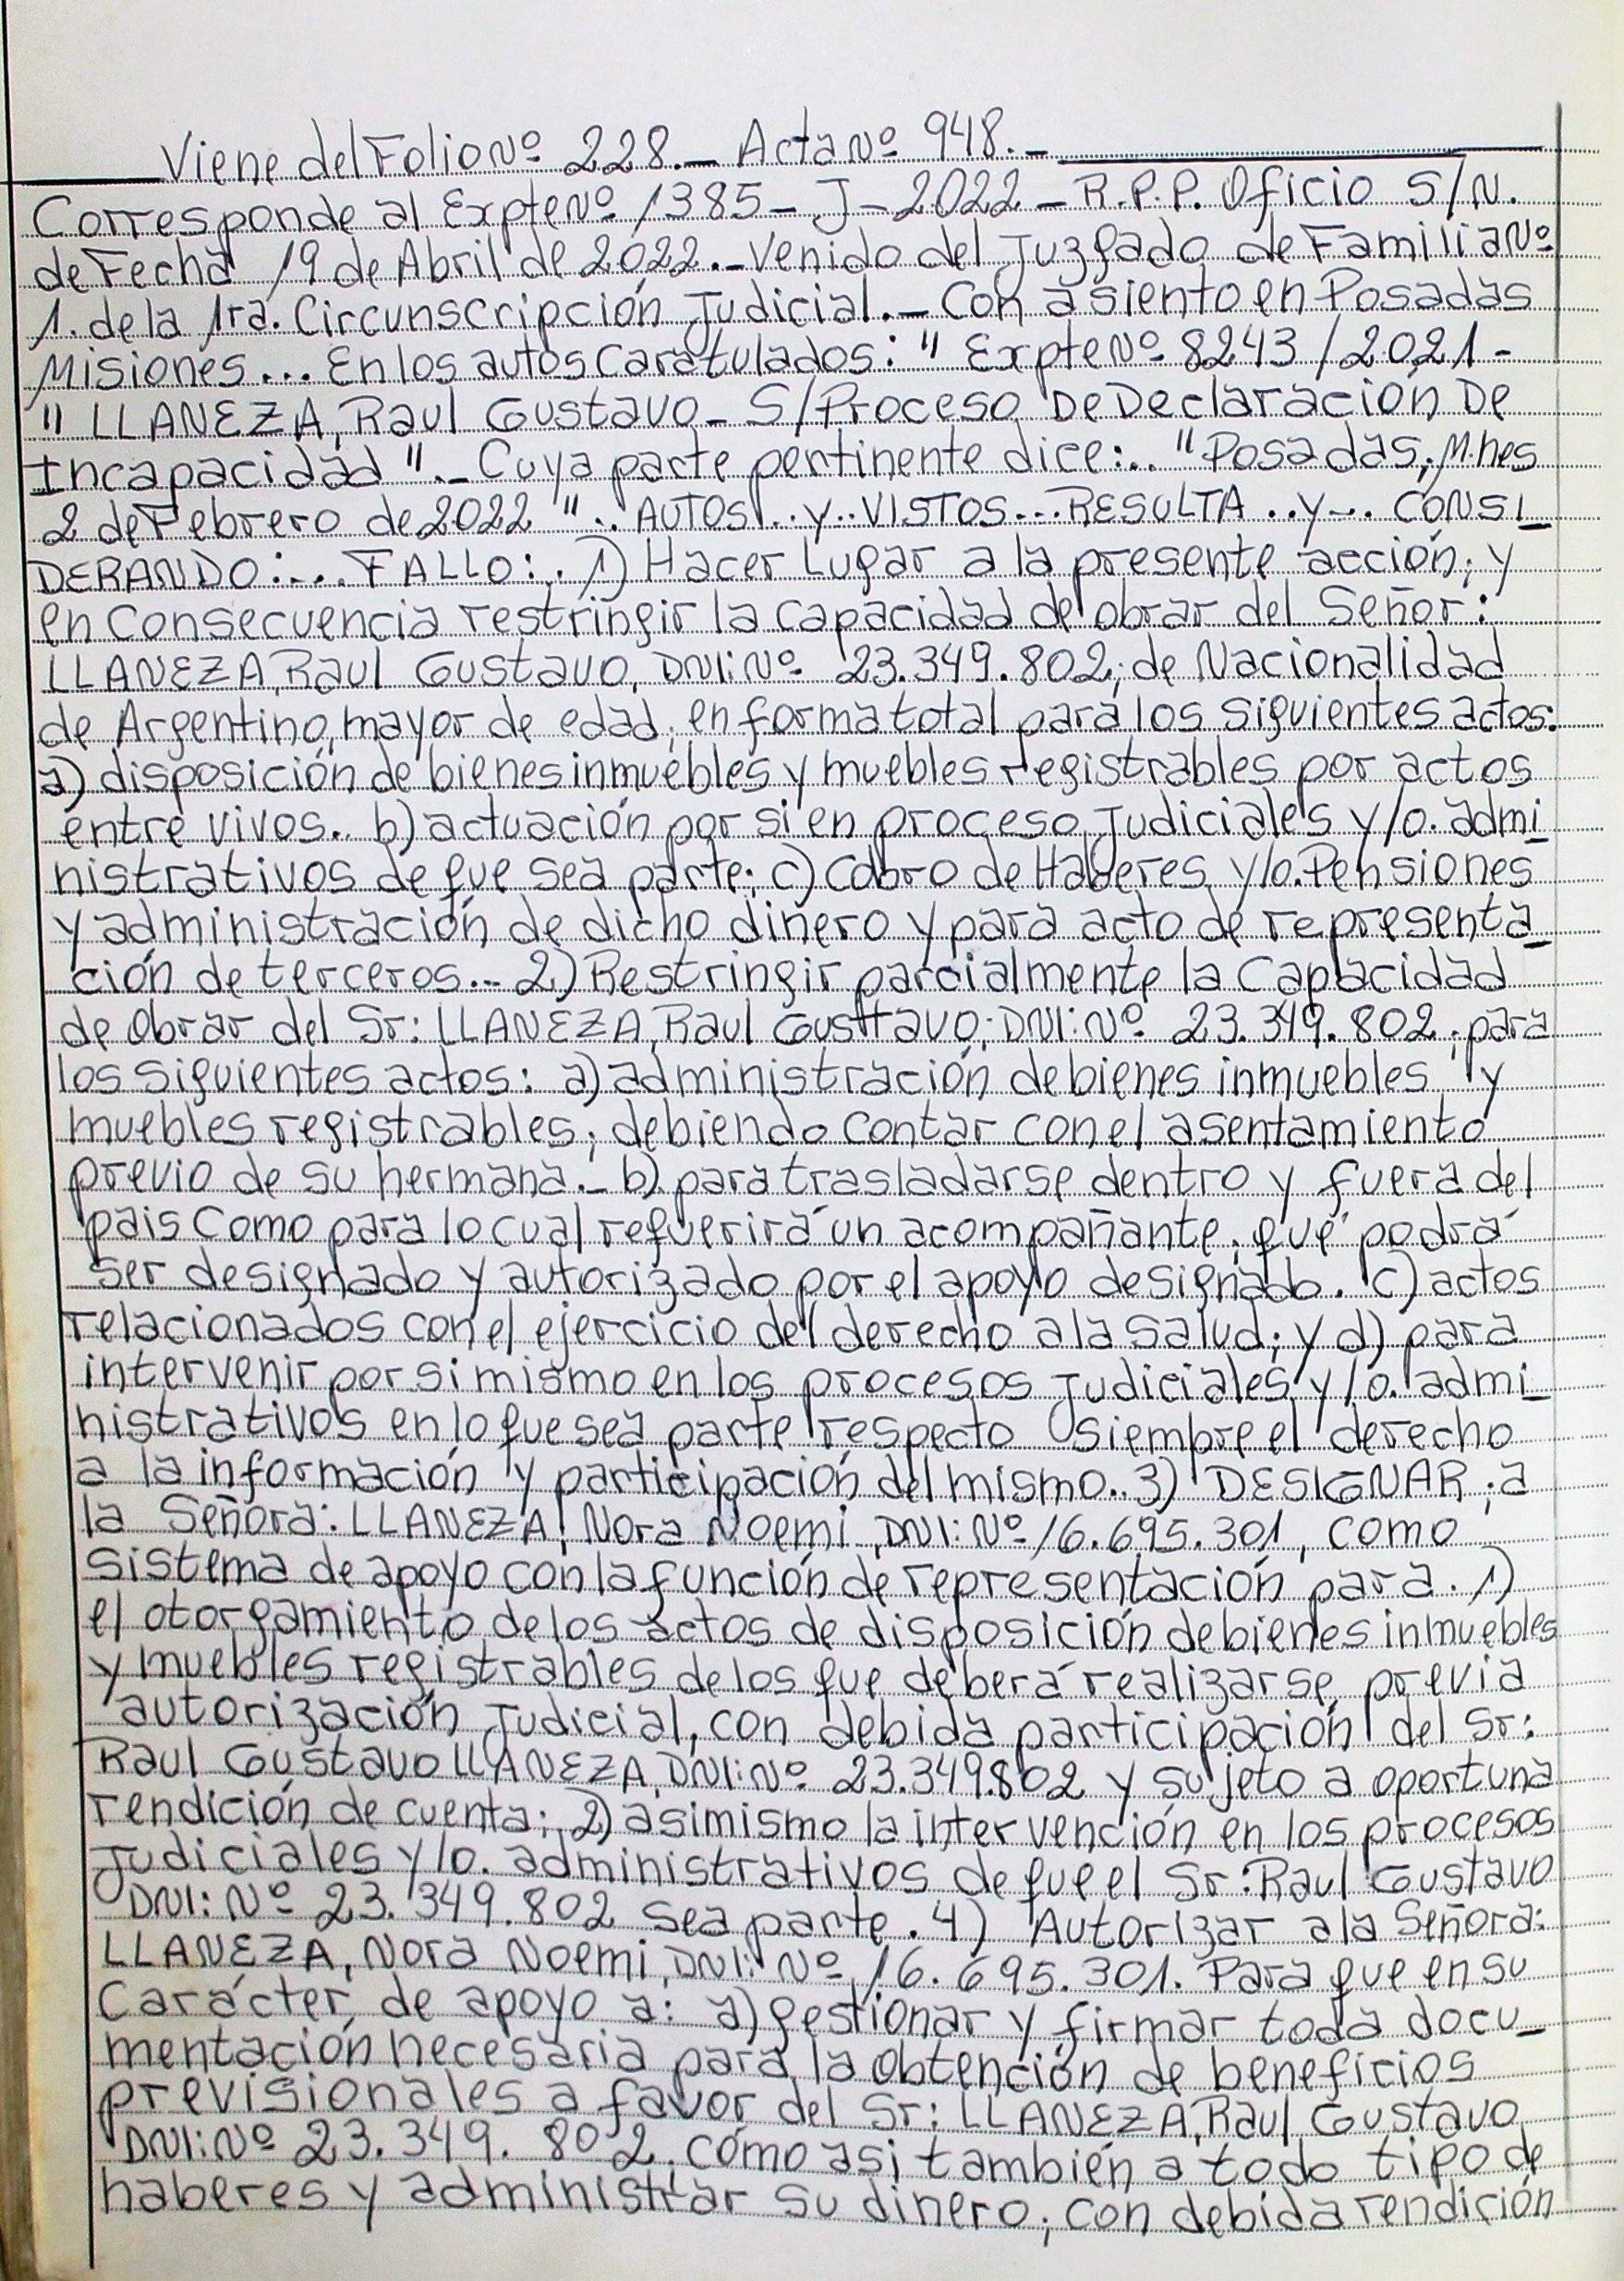 Viene del Folio Nº 228._ Acta Nº 948._
Corresponde al Expte Nº 1385_ J_2022_ R.P.P. Oficio S/N.
de Fecha 19 de Abril de 2022._Venido del Juzgado de Familia Nº
1. de la 1ra. Circunscripción Judicial._ Con asiento en Posadas
Misiones... En los autos caratulados: " Expte Nº 8243/2021-
" LLANEZA, Raul Gustavo_ S/Proceso De Declaración De
Incapacidad "._ Cuya parte pertinente dice:.. "Posadas, M.nes
2 de Febrero de 2022 ".. AUTOS...y..VISTOS...RESULTA ..y... CONSI_
DERANDO:.... FALLO:. 1) Hacer Lugar a la presente acción; y
en consecuencia restringir la capacidad de obrar del Señor:
LLANEZA, Raul Gustavo, DNI: Nº 23.349.802; de Nacionalidad
de Argentino, mayor de edad; en forma total para los siguientes actos:
a) disposición de bienes inmuebles y muebles registrables por actos
entre vivos.. b) actuación por si en proceso Judiciales y/o. admi_
nistrativos de que sea parte; c) Cobro de Haberes y/o. Pensiones
y administración de dicho dinero y para acto de representa_
ción de terceros... 2) Restringir parcialmente la Capacidad
de Obrar del Sr: LLANEZA, Raul Gusttavo; DNI: Nº 23.349.802; para
los siguientes actos: a) administración de bienes inmuebles y
muebles registrables; debiendo contar con el asentamiento
previo de su hermana._ b) para trasladarse dentro y fuera del
pais como para lo cual requerirá un acompañante; que podrá
ser designado y autorizado por el apoyo designado. c) actos
relacionados con el ejercicio del derecho a la salud; y d) para
intervenir por si mismo en los procesos Judiciales y/o. admi_
nistrativos en lo que sea parte respecto siempre el derecho
a la información y participación del mismo.. 3) DESIGNAR; a
la Señora: LLANEZA, Nora Noemi, DNI: Nº 16.695.301, como
sistema de apoyo con la función de representación para. 1)
el otorgamiento de los actos de disposición de bienes inmuebles
y muebles registrables de los que deberá realizarse previa
autorización Judicial, con debida participación del Sr:
Raul Gustavo LLANEZA, DNI: Nº 23.349.802 y sujeto a oportuna
rendición de cuenta; 2) asimismo la intervención en los procesos
Judiciales y/o. administrativos de que el Sr: Raul Gustavo
DNI: Nº 23.349.802 sea parte. 4) Autorizar a la Señora:
LLANEZA, Nora Noemi, DNI: Nº 16.695.301. Para que en su
Carácter de apoyo a: a) gestionar y firmar toda docu_
mentación necesaria para la obtención de beneficios
previsionales a favor del Sr: LLANEZA, Raul Gustavo
DNI: Nº 23.349.802. como asi también a todo tipo de
haberes y administrar su dinero; con debida rendición